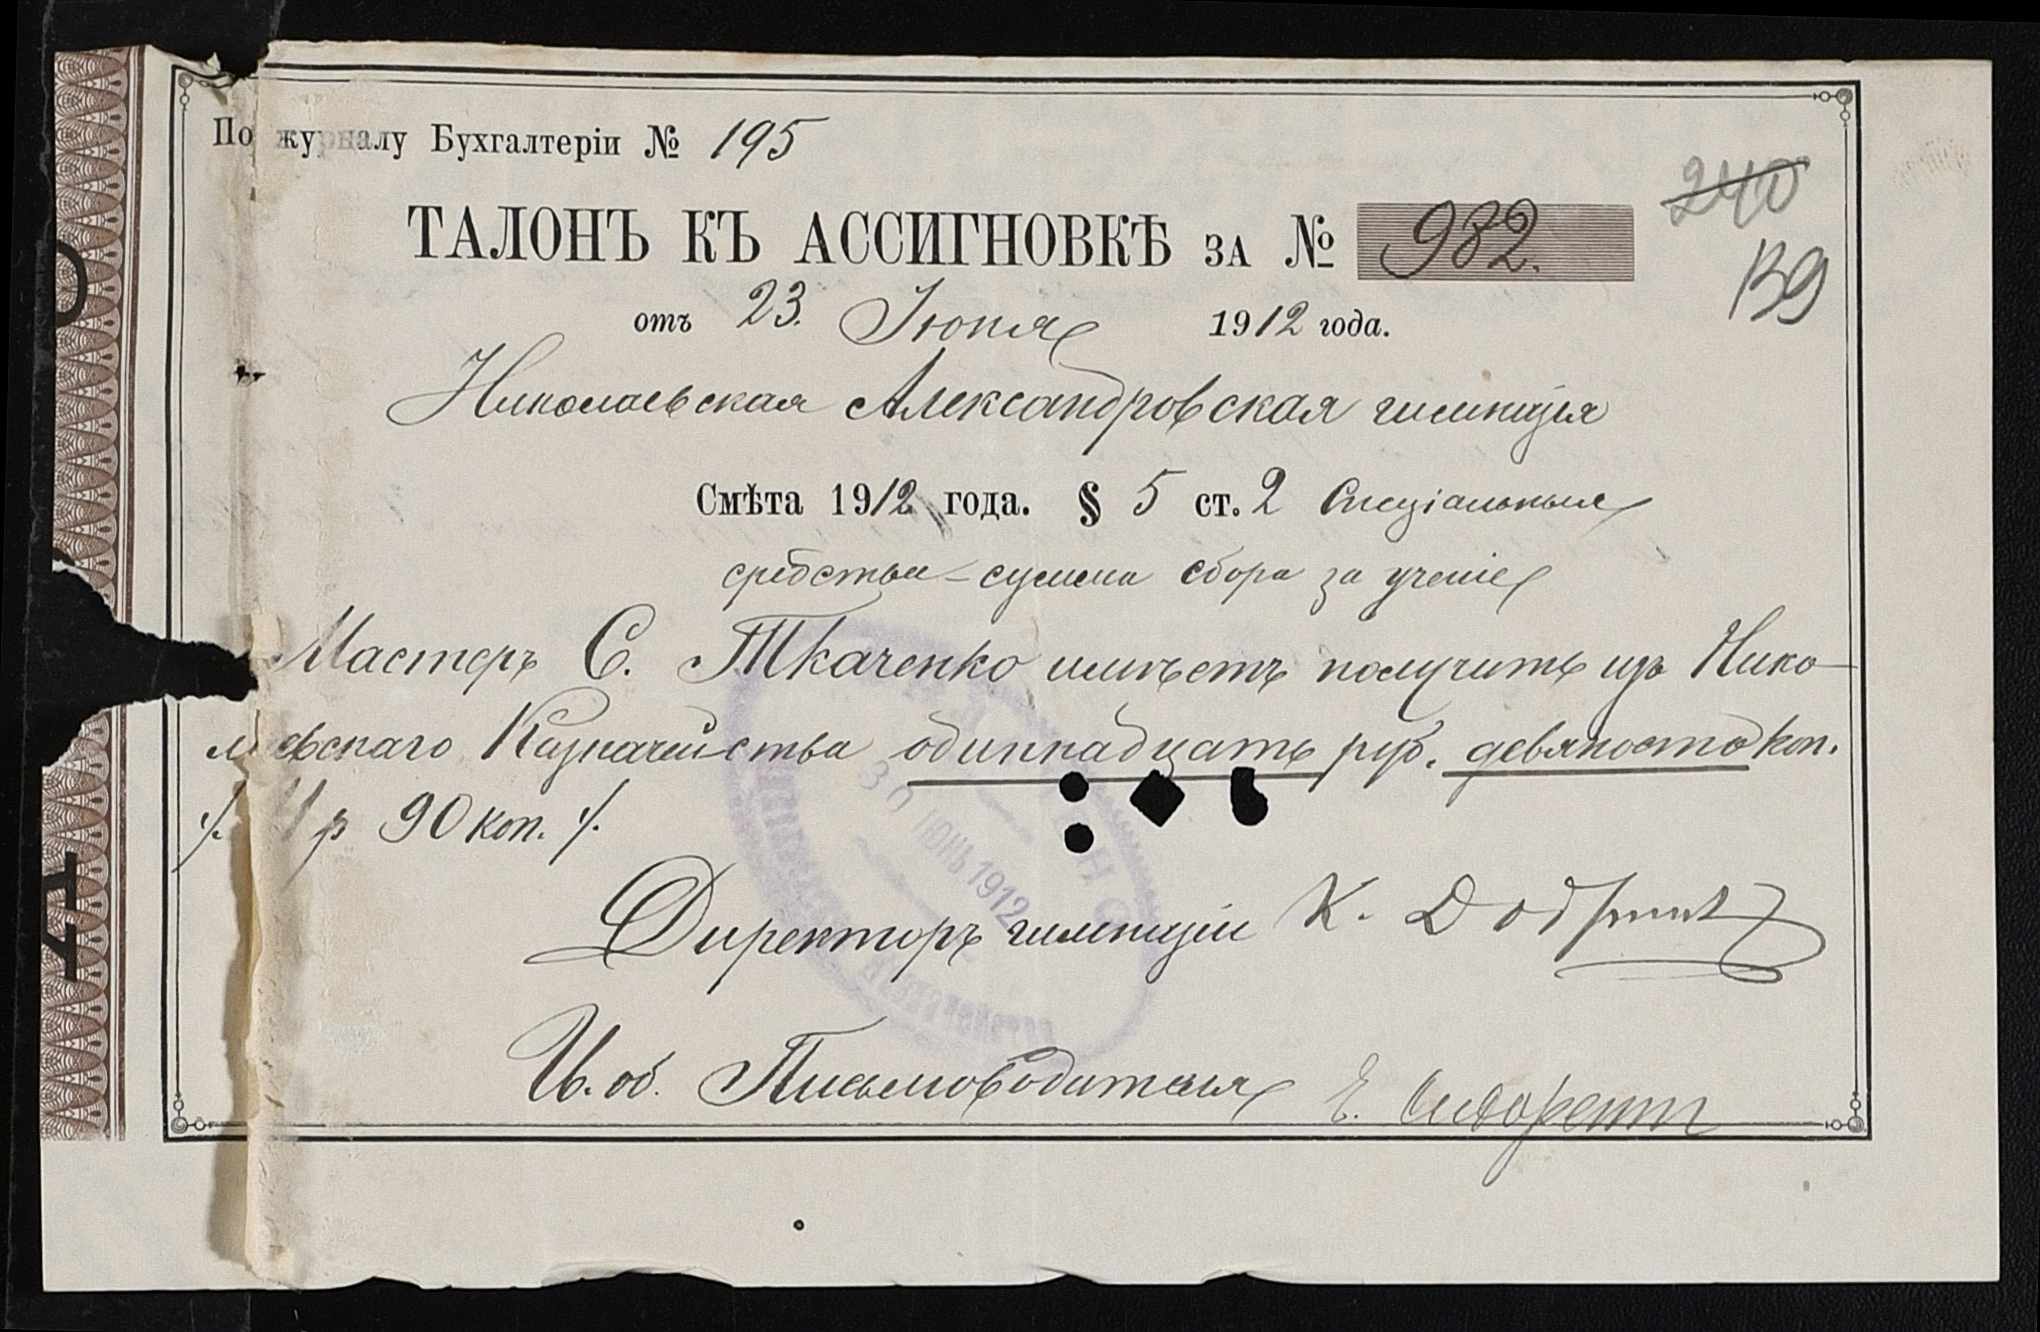 По журналу Бухгалтеріи № 195
240
139
ТАЛОНЪ КЪ АССИГНОВКѢ ЗА № 982.
отъ 23. Іюня 1912 года.
Николаевская Александровская гимназія
Смѣта 1912 года. § 5 ст. 2 Спеціальныя
средства - сумма сбора за ученіе
Мастеръ С. Ткаченко имѣетъ получить изъ Нико-
лаевскаго Казначейства одиннадцать руб. девяносто коп.
11 р 90 коп.
30 ІЮНЬ 1912
Директоръ гимназіи К.
И. об. Письмоводителя